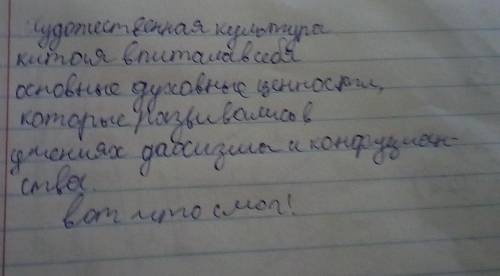 художественная культура
китая впитала в себя
основные духовные ценности,
которые развивались в
учениях даосизма и конфуциан-
ства.
вот что смог!